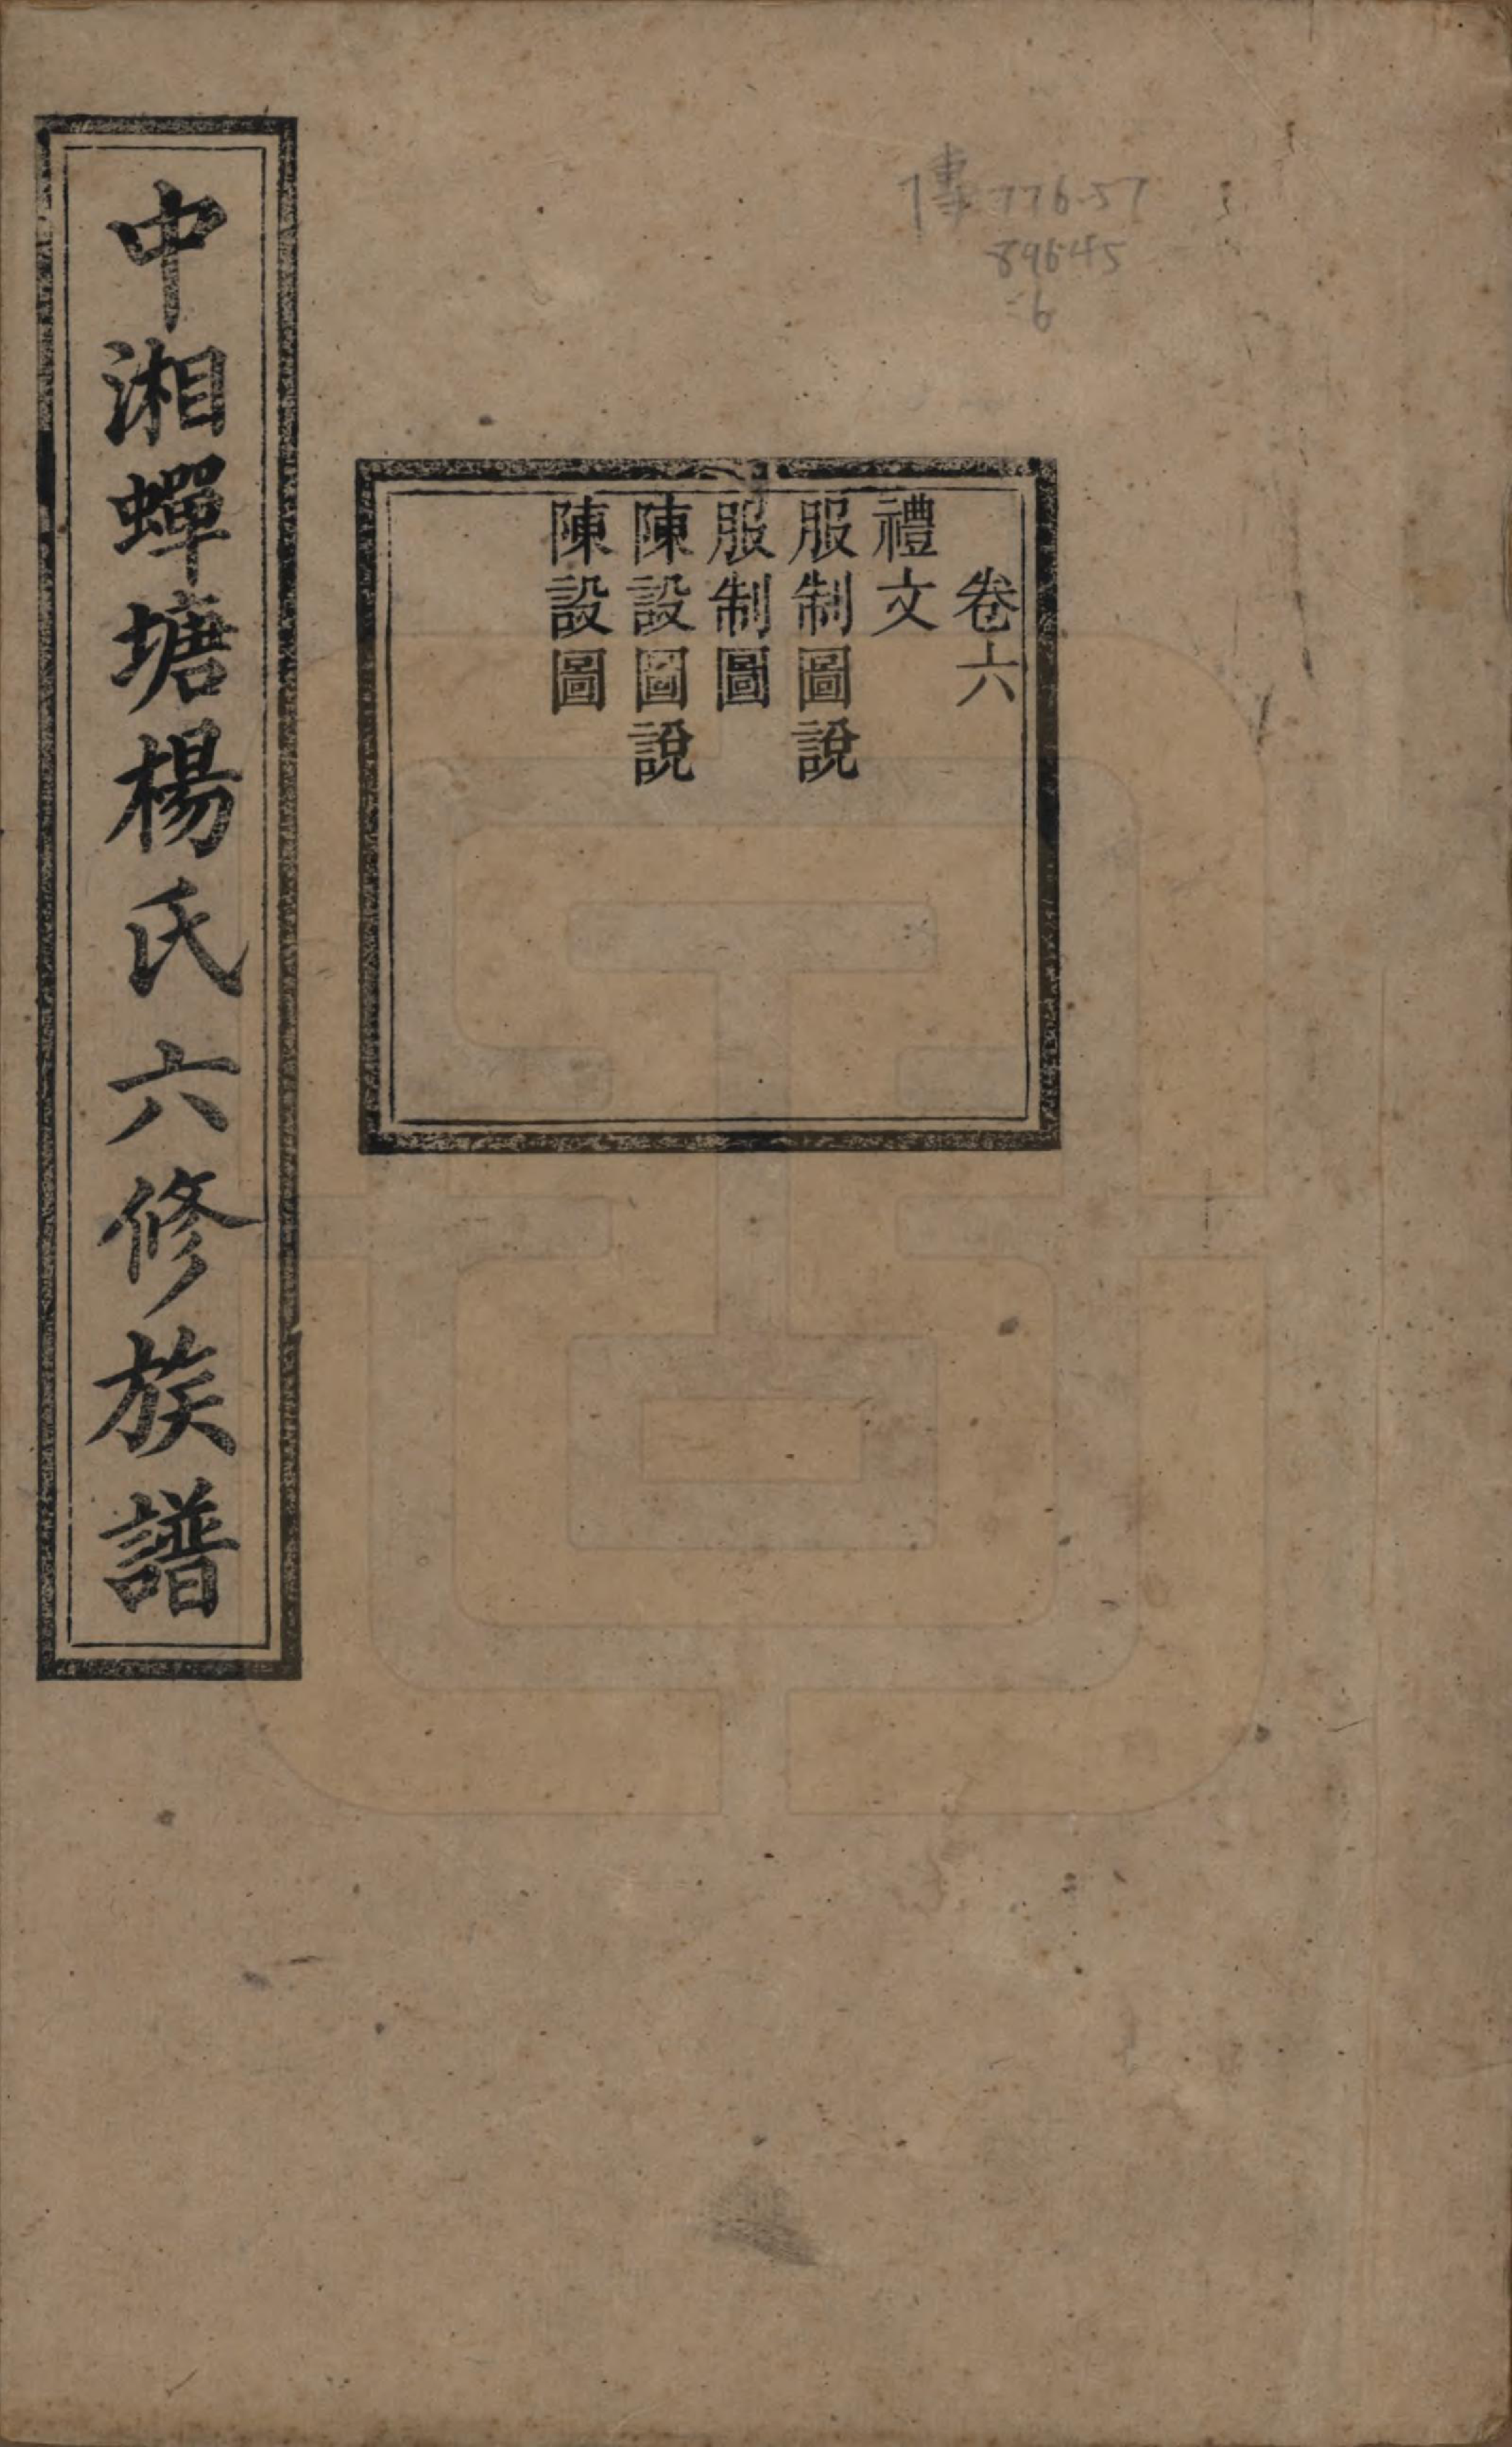 傳 776.57
89645
:6
卷六
禮文
服制圖說
服制圖
陳設圖說
陳設圖
中湘蟬塘楊氏六修族譜